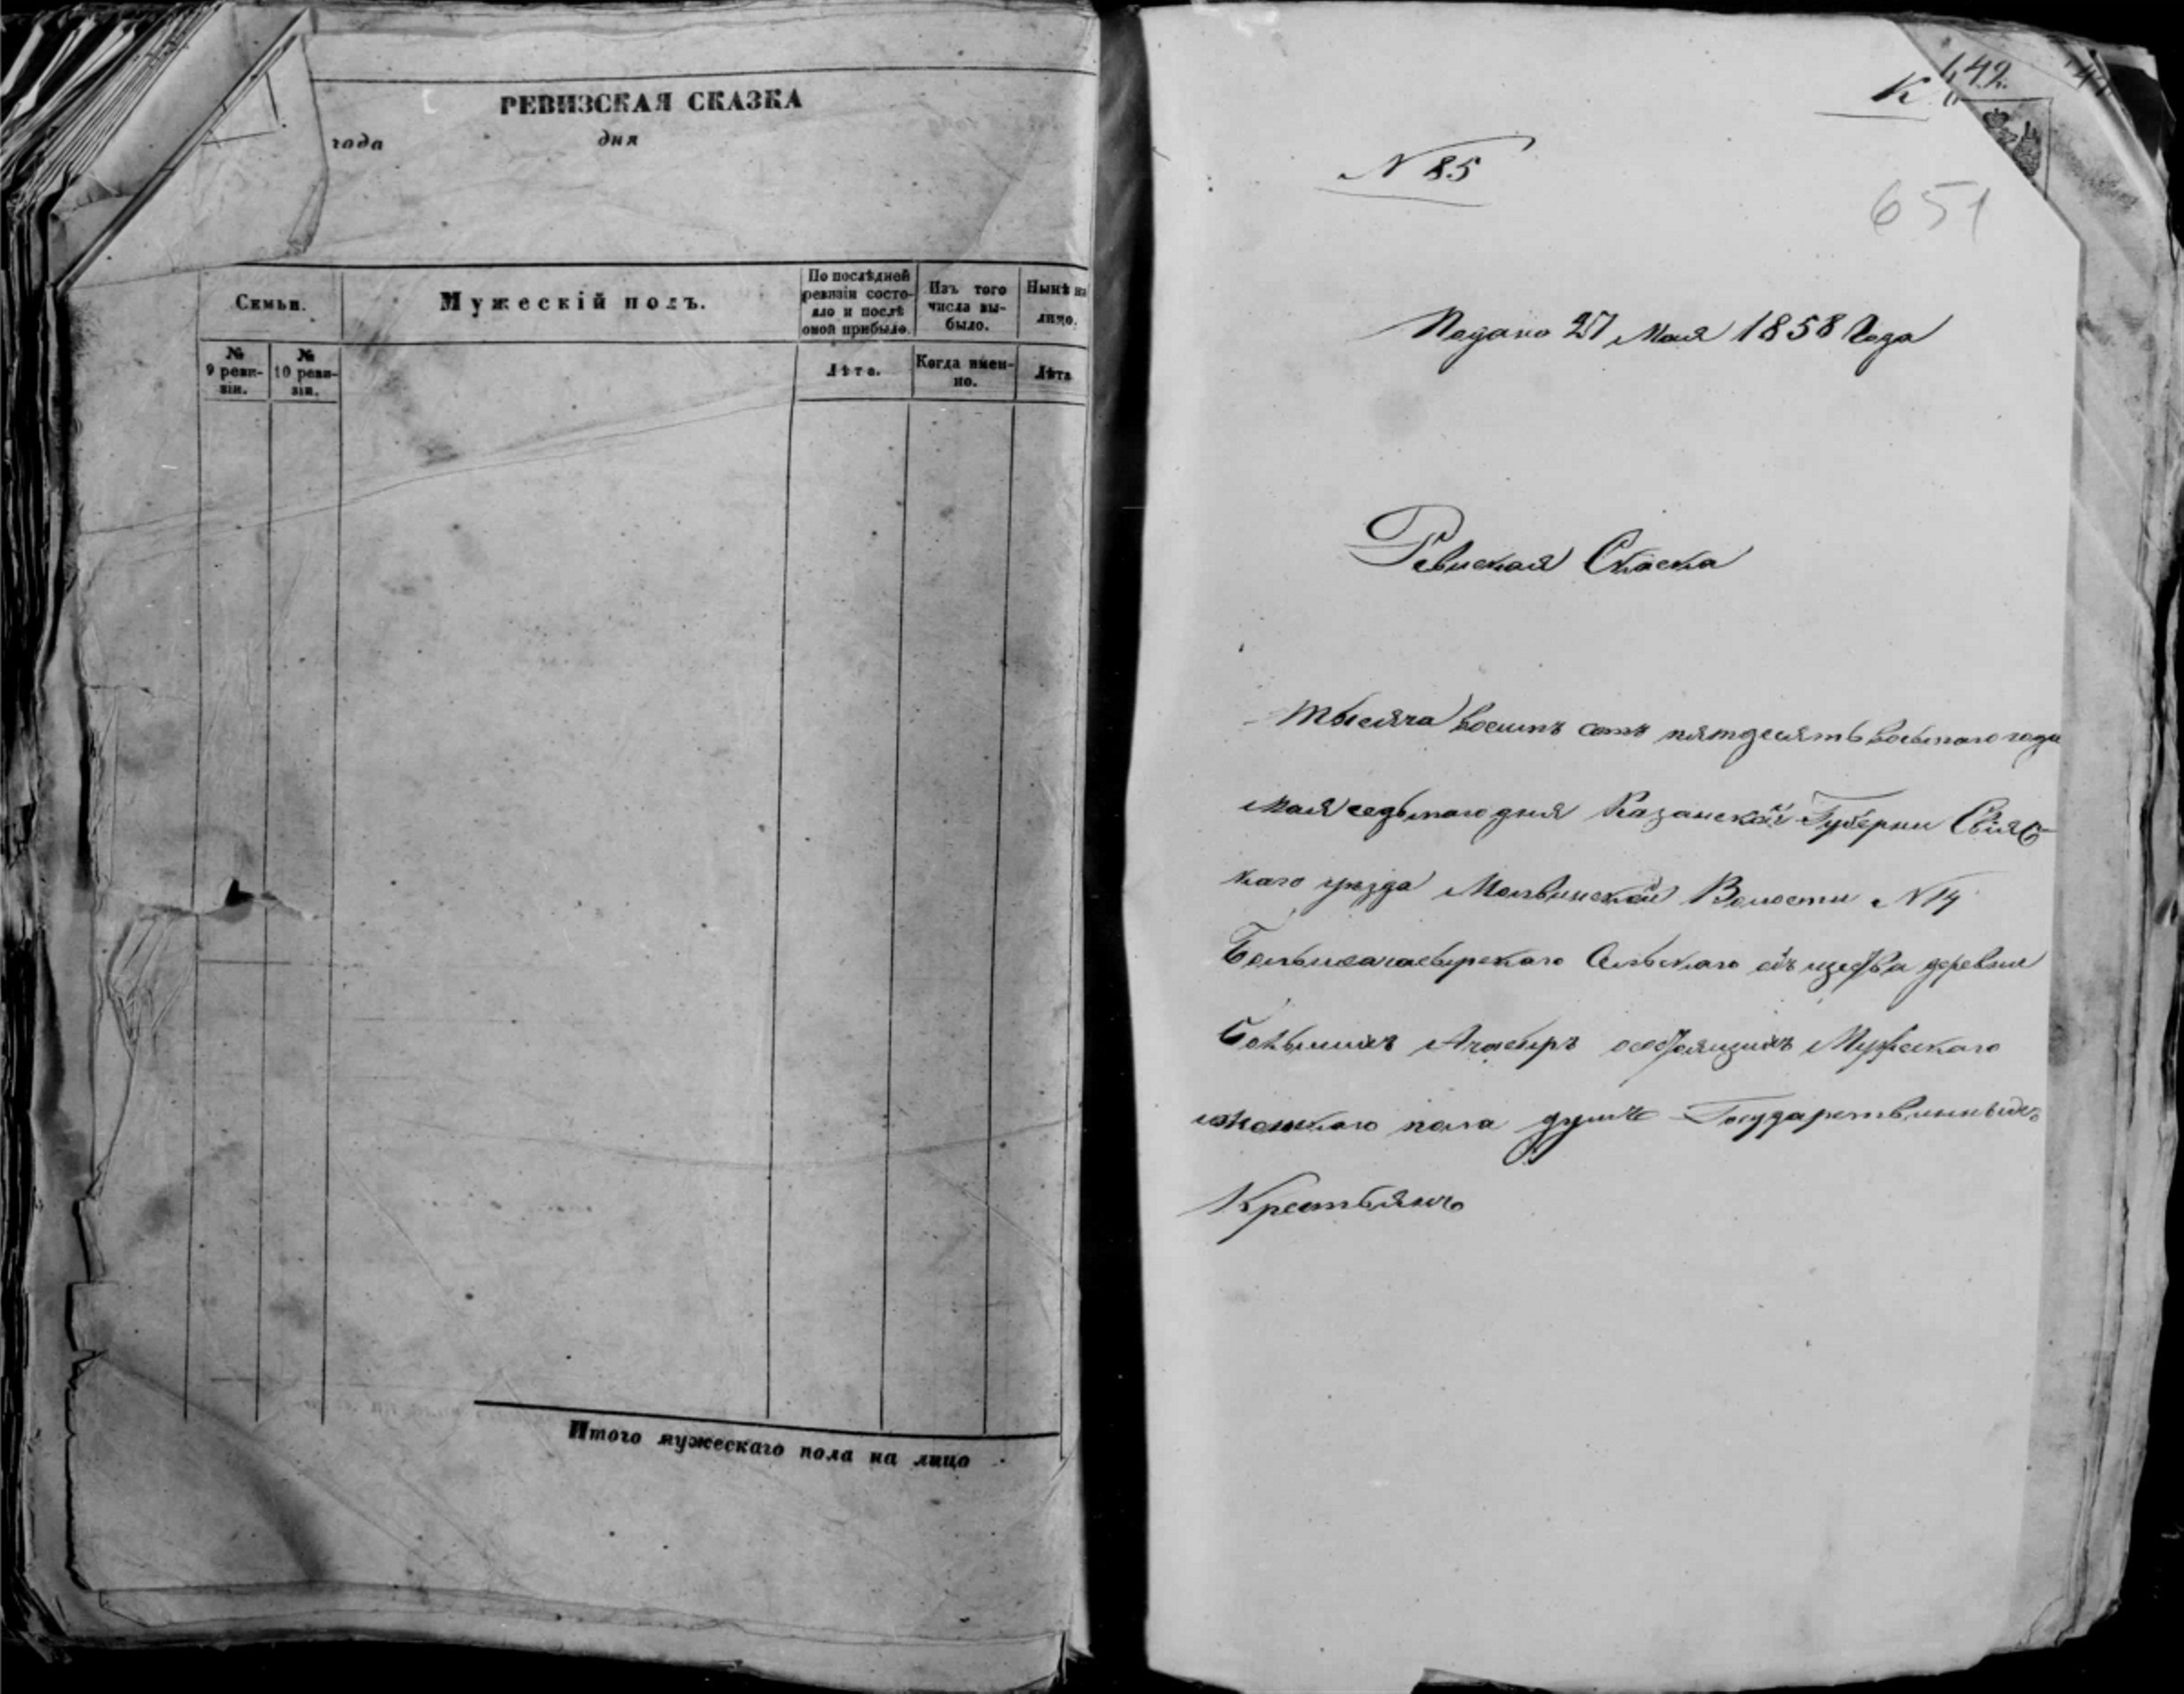 РЕВИЗСКАЯ СКАЗКА
года дня
Семьи.
Мужескій полъ.
По послѣдней ревизіи состояло и послѣ оной прибыло.
Изъ того числа выбыло.
Нынѣ на лицо.
№ 9 ревизіи.
№ 10 ревизіи.
Лѣта.
Когда именно.
Лѣта
Итого мужескаго пола на лицо
К
49.
N 85
651
Подано 27 Мая 1858 Года
Ревиская Скаска
Тысяча восемъ сотъ пятдесятъ восьмаго года
мая седьмаго дня Казанской Губерни Свіяс-
каго уезда Молвинской Волости N 14
Большеачасырскаго Сельскаго общества деревни
Большихъ Ачасыръ Мужескаго
женскаго пола душъ Государственныхъ
Крестьянъ